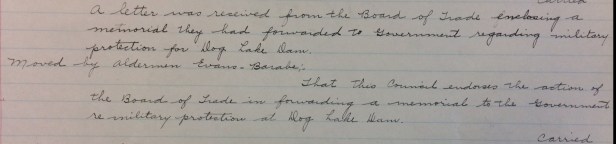 Carried
A letter was received from the Board of Trade enclosing a
memorial they had forwarded to Government regarding military
protection for Dog Lake Dam.
Moved by Aldermen Evans - Barabe;.
That this Council endorses the action of
the Board of Trade in forwarding a memorial to the Government
re military protection at Dog Lake Dam.
Carried